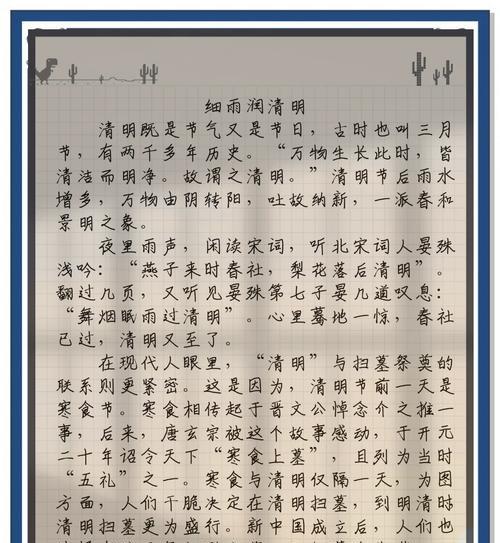 细雨润清明
清明既是节气又是节日，古时也叫三月
节，有两千多年历史。“万物生长此时，皆
清洁而明净。故谓之清明。”清明节后雨水
增多，万物由阴转阳，吐故纳新，一派春和
景明之象。
夜里雨声，闲读宋词，听北宋词人晏殊
浅吟：“燕子来时春社，梨花落后清明”。
翻过几页，又听见晏殊第七子晏几道叹息：
“舞烟眠雨过清明”。心里蓦地一惊，春社
已过，清明又至了。
在现代人眼里，“清明”与扫墓祭奠的
联系则更紧密。这是因为，清明节前一天是
寒食节。寒食相传起于晋文公悼念介之推一
事，后来，唐玄宗被这个故事感动，于开元
二十年诏令天下“寒食上墓”，且列为当时
“五礼”之一。寒食与清明仅隔一天，为图
方面，人们干脆决定在清明扫墓，到明清时
清明扫墓更为盛行。新中国成立后，人们也